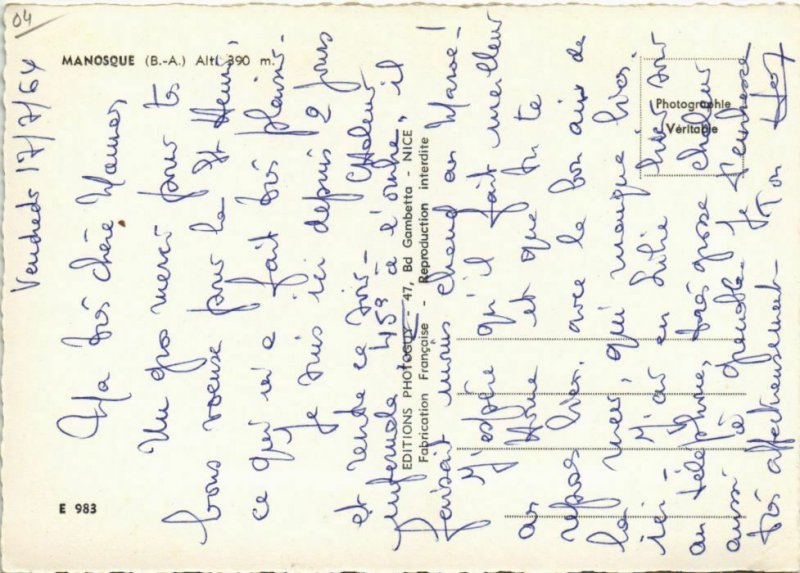 04
MANOSQUE (B.-A.) Alt. 390 m.
Vendredi 17/7/64
Ma très chère Maman
Un gros merci pour tes
bons voeux pour la St Henri,
ce qui m'a fait très plaisir.
Je suis ici depuis 2 jours
et rentre ce soir - Chaleur
infernale, 45° à l'ombre, il
faisait moins chaud au Maroc!
J'espère qu'il fait meilleur
au Hôme et que tu te
reposes bien avec le bon air de
la mer, qui manque bien
ici - J'ai eu Julie hier soir
au téléphone, très grosse chaleur
aussi à Grenoble. Je t'embrasse
très affectueusement - Ton
EDITIONS PHOTOGUY - 47, Bd Gambetta - NICE
Fabrication Française - Reproduction interdite
Photographie
Véritable
E 983